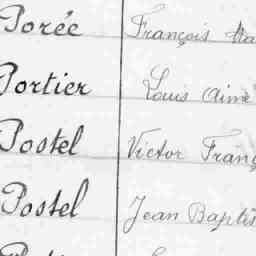 Porée François
Portier Louis Aimé
Postel Victor Franç
Postel Jean Baptis